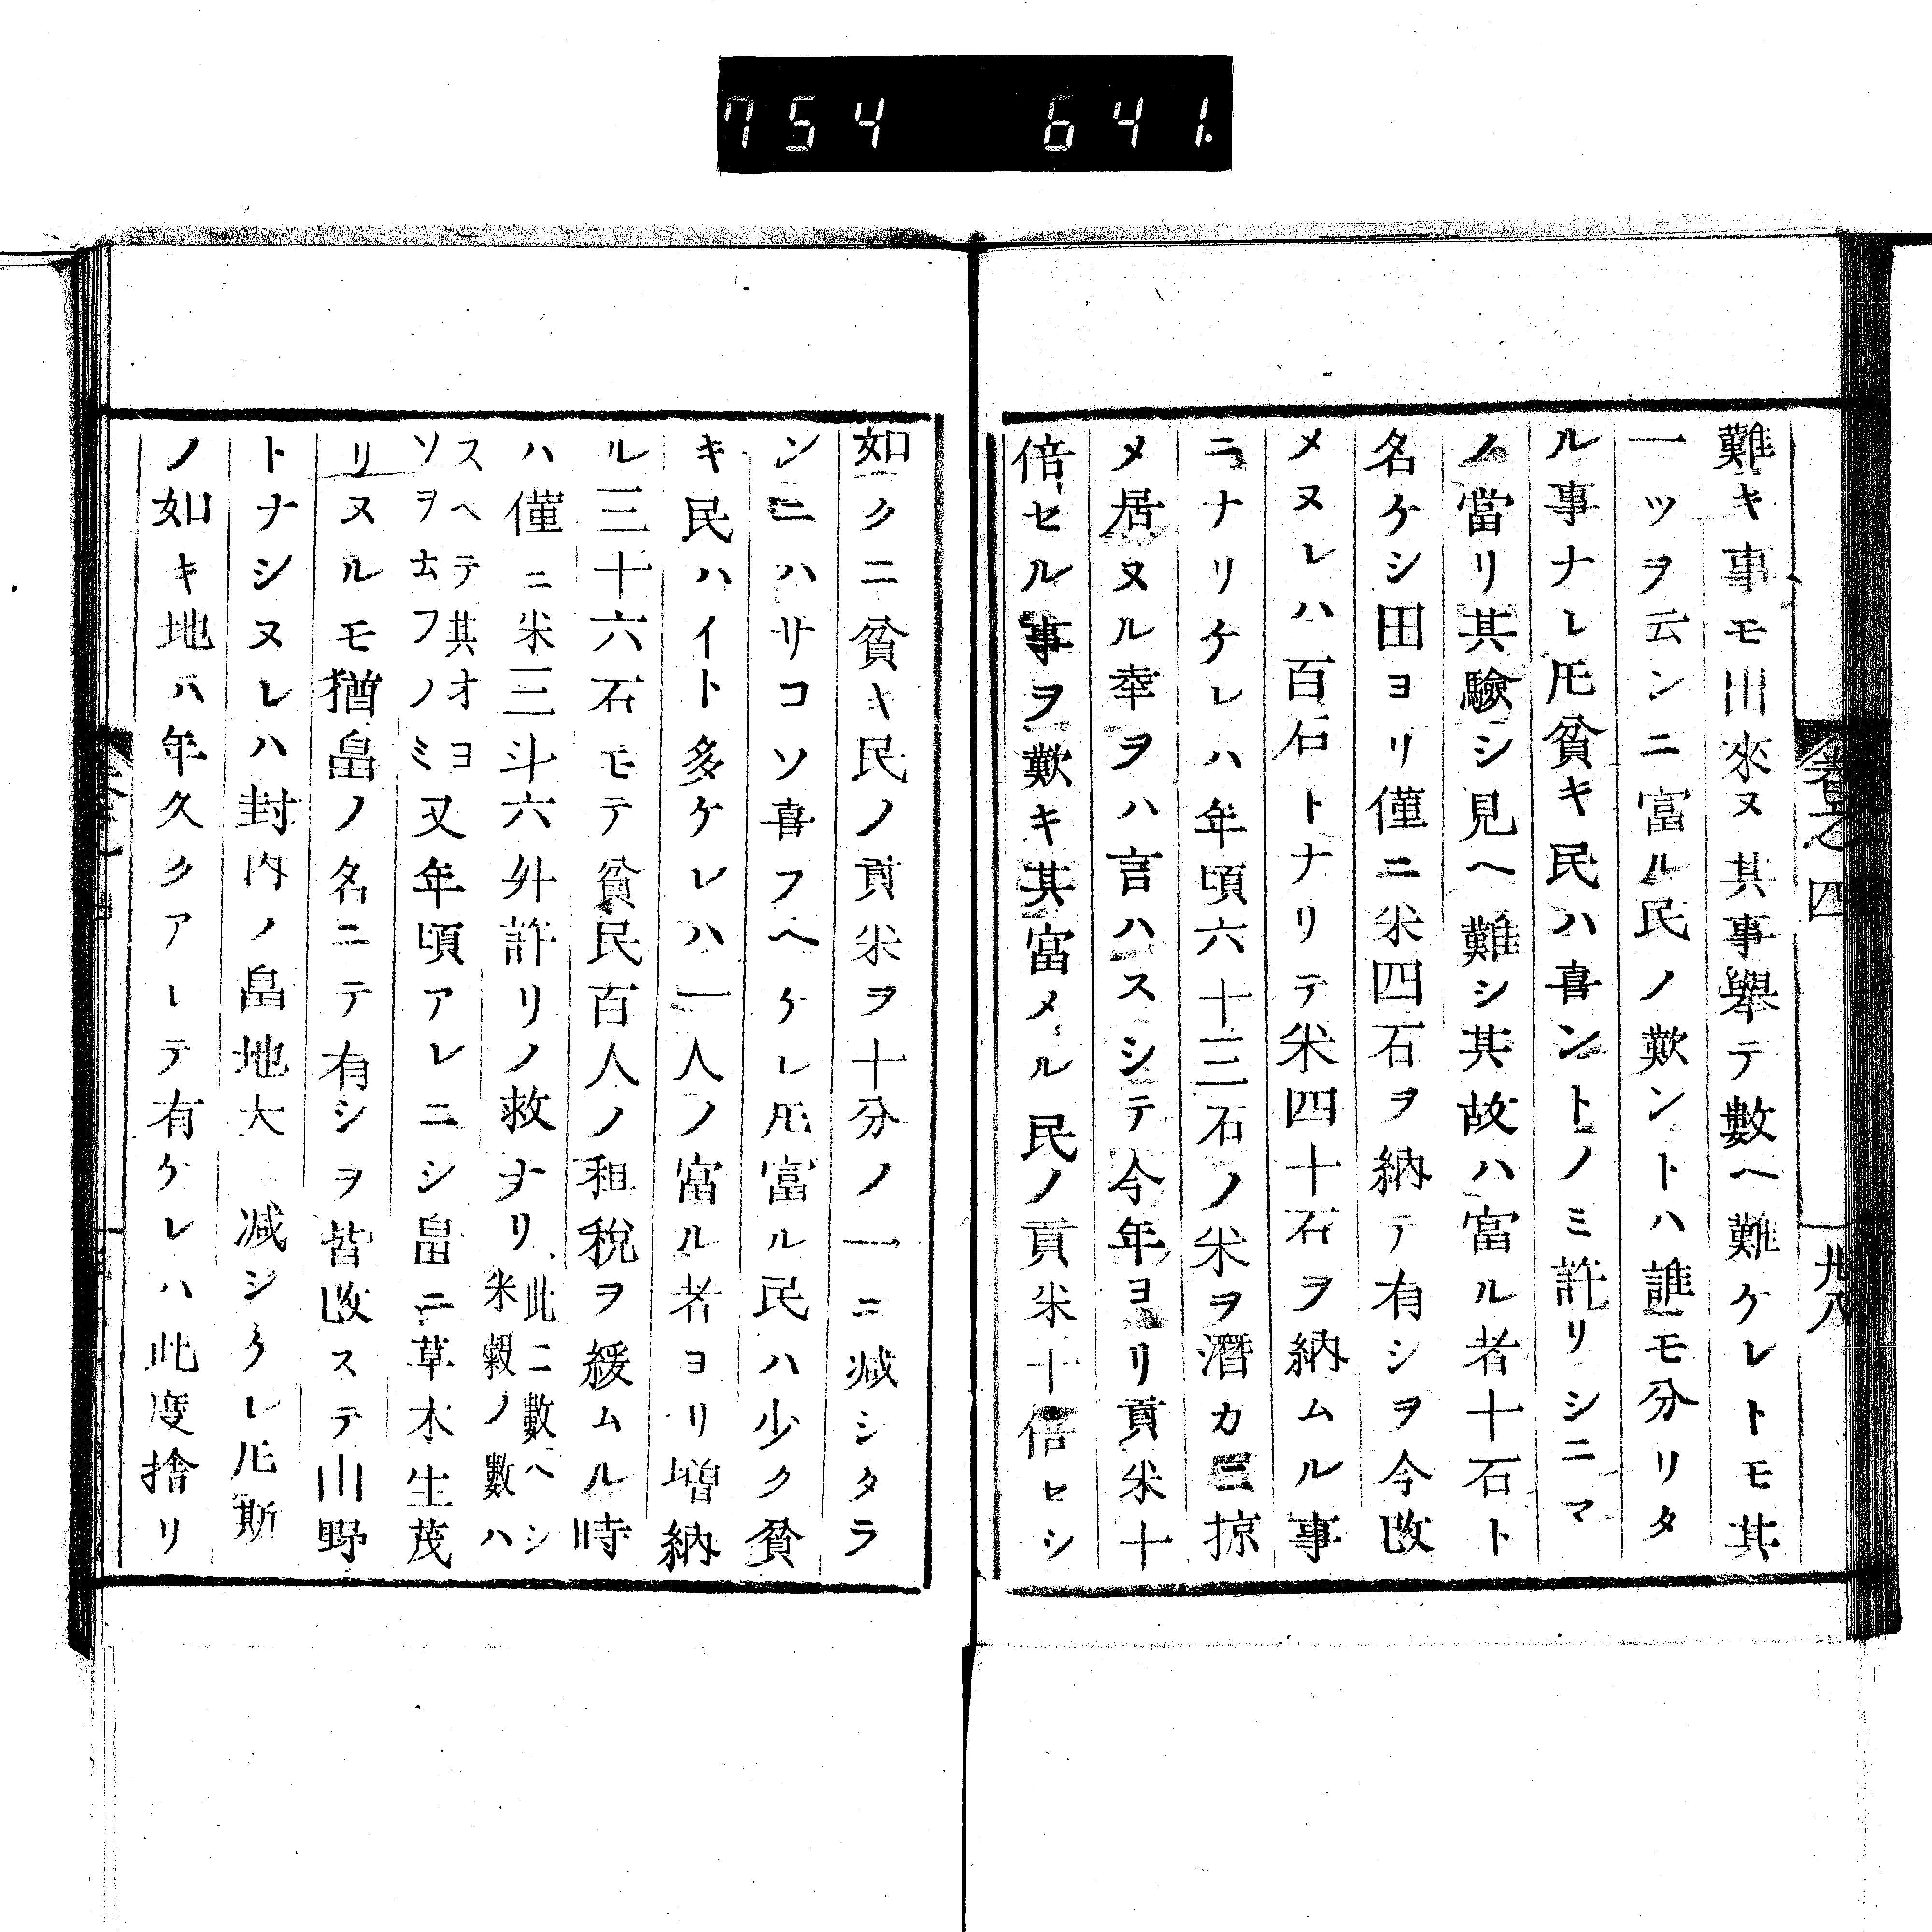 754 641.
難キ事モ出來ヌ其事擧テ數ヘ難ケレトモ其
一ツヲ云ンニ富ル民ノ歎ントハ誰モ分リタ
ル事ナレ𪜈貧キ民ハ喜ントノミ許リシニマ
ノ當リ其驗シ見ヘ難シ其故ハ富ル者十石ト
名ケシ田ヨリ僅ニ米四石ヲ納テ有シヲ今改
メヌレハ百石トナリテ米四十石ヲ納ムル事
ニナリケレハ年頃六十三石ノ米ヲ濳カニ掠
メ居ヌル幸ヲハ言ハスシテ今年ヨリ貢米十
倍セル事ヲ歎キ其富メル民ノ貢米十倍セシ
卷之四
廿八
如クニ貧キ民ノ貢米ヲ十分ノ一ニ减シタラ
ンニハサコソ喜フヘケレ𪜈富ル民ハ少ク貧
キ民ハイト多ケレハ一人ノ富ル者ヨリ増納
ル三十六石モテ貧民百人ノ租税ヲ緩ムル時
ハ僅ニ米三斗六外許リノ救ナリ此ニ數ヘシ米糓ノ數ハ
スヘテ其オヨソヲ云フノミ又年頃アレニシ畠ニ草木生茂
リヌルモ猶畠ノ名ニテ有シヲ皆改ステ山野
トナシヌレハ封内ノ畠地大減シタレ𪜈斯
ノ如キ地ハ年久クアレテ有ケレハ此度捨リ